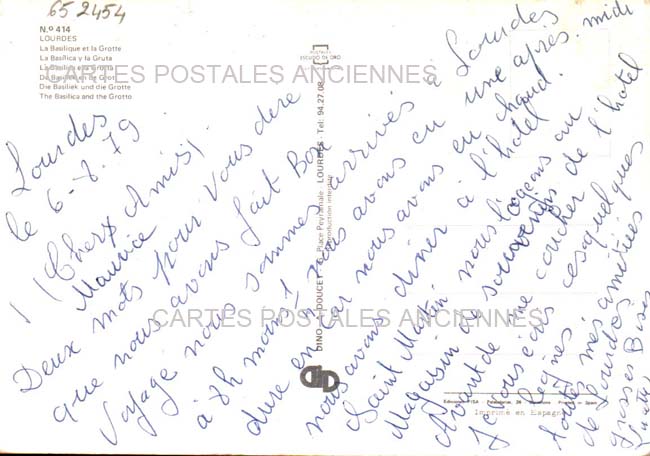 65 2454
N.º 414
LOURDES
La Basilique et la Grotte
La Basílica y la Gruta
La Basilica e la Grotta
De Basiliek en de Grot
Die Basiliek und die Grotte
The Basilica and the Grotto
CARTES POSTALES ANCIENNES
POSTALES
ESCUDO DE ORO
DINO - DOUCET - 6, Place Peyramale - LOURDES - Tel: 94.27.08
Reproduction interdite
Lourdes
le 6-8-79
Chers Amis,
Maurice
Deux mots pour vous dire
que nous avons fait Bon
Voyage nous sommes arrivés à Lourdes
à 8h moins 1 nous avons eu une après-midi
dure en car nous avons eu chaud.
nous avons diner à l'hotel
Saint Martin nous logeons au
Magasin de souvenirs de l'hotel
Avant de me coucher
Je vous écris ces quelques
lignes.
toutes mes amitiées
de Lourdes
grosses Bises
CARTES POSTALES ANCIENNES
Imprimé en Espagne